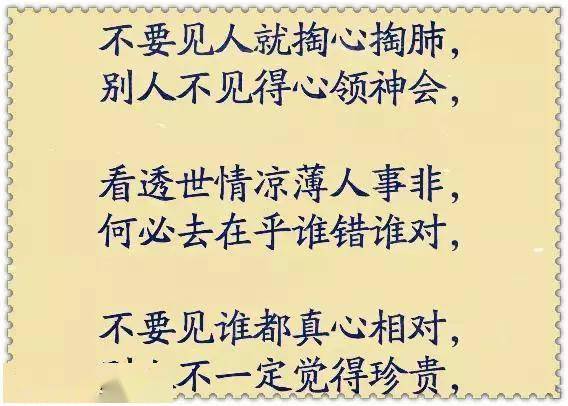 不要见人就掏心掏肺，
别人不见得心领神会，
看透世情凉薄人事非，
何必去在乎谁错谁对，
不要见谁都真心相对，
不一定觉得珍贵，